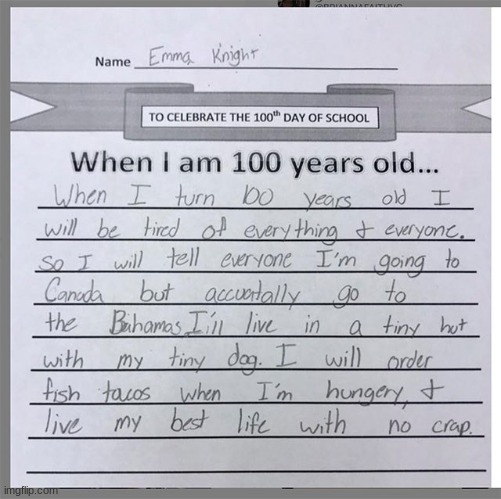 Name Emma Knight
TO CELEBRATE THE 100th DAY OF SCHOOL
When I am 100 years old...
When I turn 100 years old I
will be tired of everything & everyone.
so I will tell everyone I'm going to
Canada but accuatally go to
the Bahamas I'll live in a tiny hut
with my tiny dog. I will order
fish tacos when I'm hungery, &
live my best life with no crap.
imgflip.com